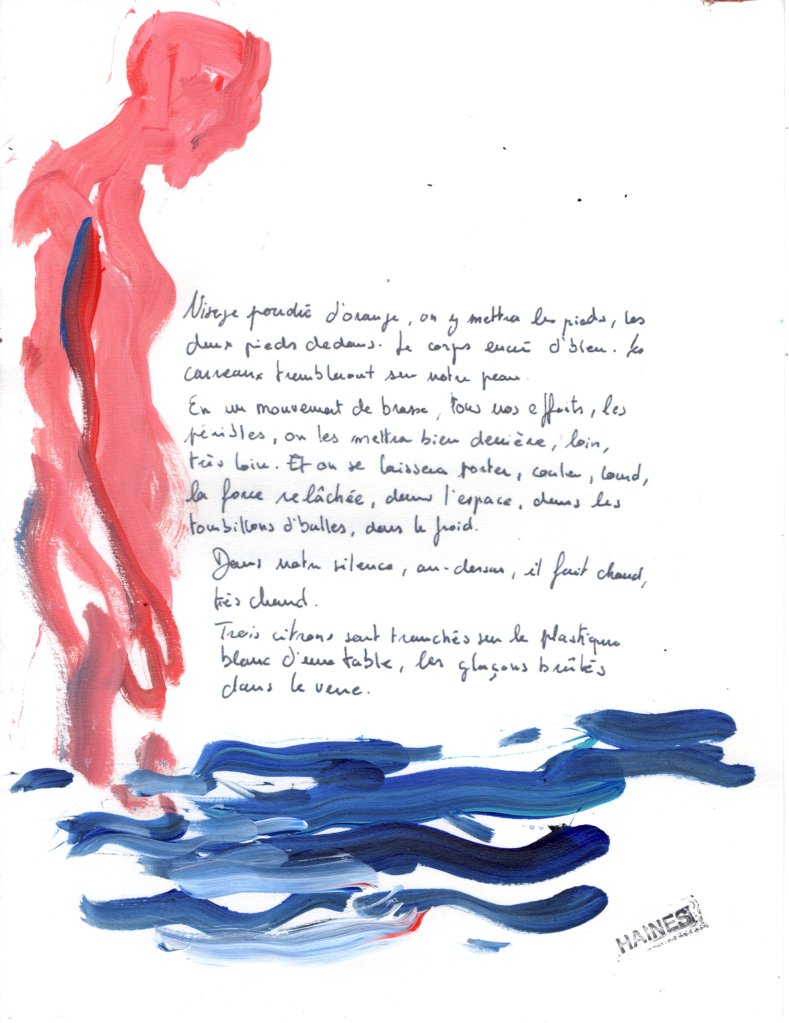 Visage poudré d'orange, on y mettra les pieds, les
deux pieds dedans. Le corps encré d'bleu. Les
carreaux trembleront sur notre peau.
En un mouvement de brasse, tous nos efforts, les
pénibles, on les mettra bien derrière, loin,
très loin. Et on se laissera porter, couler, lourd,
la force relâchée, dans l'espace, dans les
tourbillons d'bulles, dans le froid.
Dans notre silence, au-dessus, il fait chaud,
très chaud.
Trois citrons sont tranchés sur le plastique
blanc d'une table, les glaçons brûlés
dans le verre.
HAINES